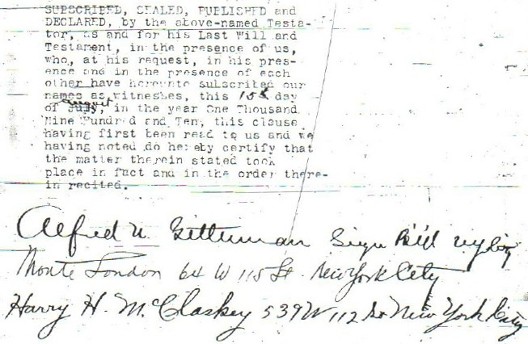 SUBSCRIBED, SEALED, PUBLISHED and
DECLARED, by the above-named Testa-
tor, as and for his Last Will and
Testament, in the presence of us,
who, at his request, in his pres-
ence and in the presence of each
other have hereunto subscribed our
names as witnesses, this 15th day
August
of July, in the year One Thousand
Nine Hundred and Ten, this clause
having first been read to us and we
having noted do hereby certify that
the matter therein stated took
place in fact and in the order there-
in recited.
Alfred N. Gitterman
Monte London 64 W 115 St. New York City
Harry H. McClaskey 539 W 112 St New York City